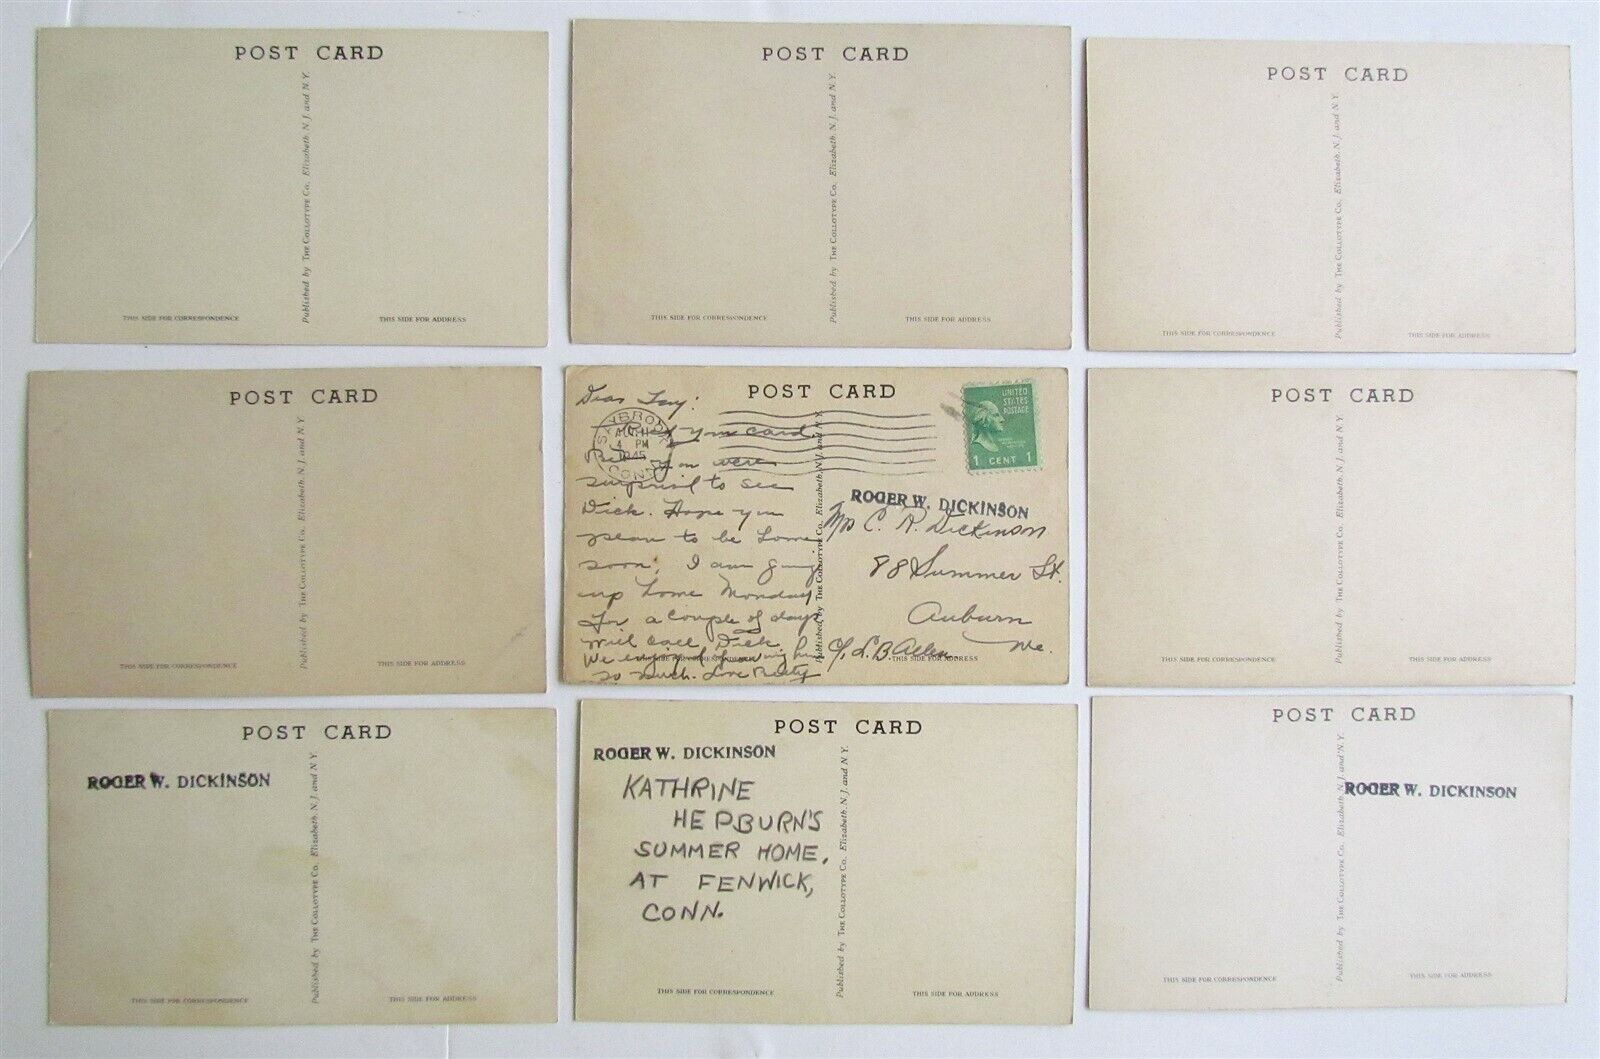 POST CARD
Published by THE COLLOTYPE Co. Elizabeth, N. J. and N. Y.
THIS SIDE FOR CORRESPONDENCE
THIS SIDE FOR ADDRESS
POST CARD
Published by THE COLLOTYPE Co. Elizabeth, N. J. and N. Y.
THIS SIDE FOR CORRESPONDENCE
THIS SIDE FOR ADDRESS
POST CARD
Published by THE COLLOTYPE Co. Elizabeth, N. J. and N. Y.
THIS SIDE FOR CORRESPONDENCE
THIS SIDE FOR ADDRESS
POST CARD
Published by THE COLLOTYPE Co. Elizabeth, N. J. and N. Y.
THIS SIDE FOR CORRESPONDENCE
THIS SIDE FOR ADDRESS
POST CARD
Dear Fay:
your card.
Bet you were
surprised to see
Dick. Hope you
plan to be home
soon, I am going
up home Monday
for a couple of days
will call Dick.
We enjoyed having him
so much. Love Betty
SAYBROOK
4 PM
1945
CONN.
UNITED
STATES
POSTAGE
1 CENT 1
ROGER W. DICKINSON
C. R. Dickinson
88 Summer St.
Auburn
Me.
c/o L. B. Allen
Published by THE COLLOTYPE Co. Elizabeth, N. J. and N. Y.
THIS SIDE FOR CORRESPONDENCE
THIS SIDE FOR ADDRESS
POST CARD
Published by THE COLLOTYPE Co. Elizabeth, N. J. and N. Y.
THIS SIDE FOR CORRESPONDENCE
THIS SIDE FOR ADDRESS
POST CARD
ROGER W. DICKINSON
Published by THE COLLOTYPE Co. Elizabeth, N. J. and N. Y.
THIS SIDE FOR CORRESPONDENCE
THIS SIDE FOR ADDRESS
POST CARD
ROGER W. DICKINSON
KATHRINE
HEPBURN'S
SUMMER HOME,
AT FENWICK,
CONN.
Published by THE COLLOTYPE Co. Elizabeth, N. J. and N. Y.
THIS SIDE FOR CORRESPONDENCE
THIS SIDE FOR ADDRESS
POST CARD
ROGER W. DICKINSON
Published by THE COLLOTYPE Co. Elizabeth, N. J. and N. Y.
THIS SIDE FOR CORRESPONDENCE
THIS SIDE FOR ADDRESS